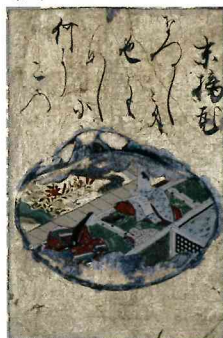 末摘花
なつかしき
色とも
なしに
何に
この